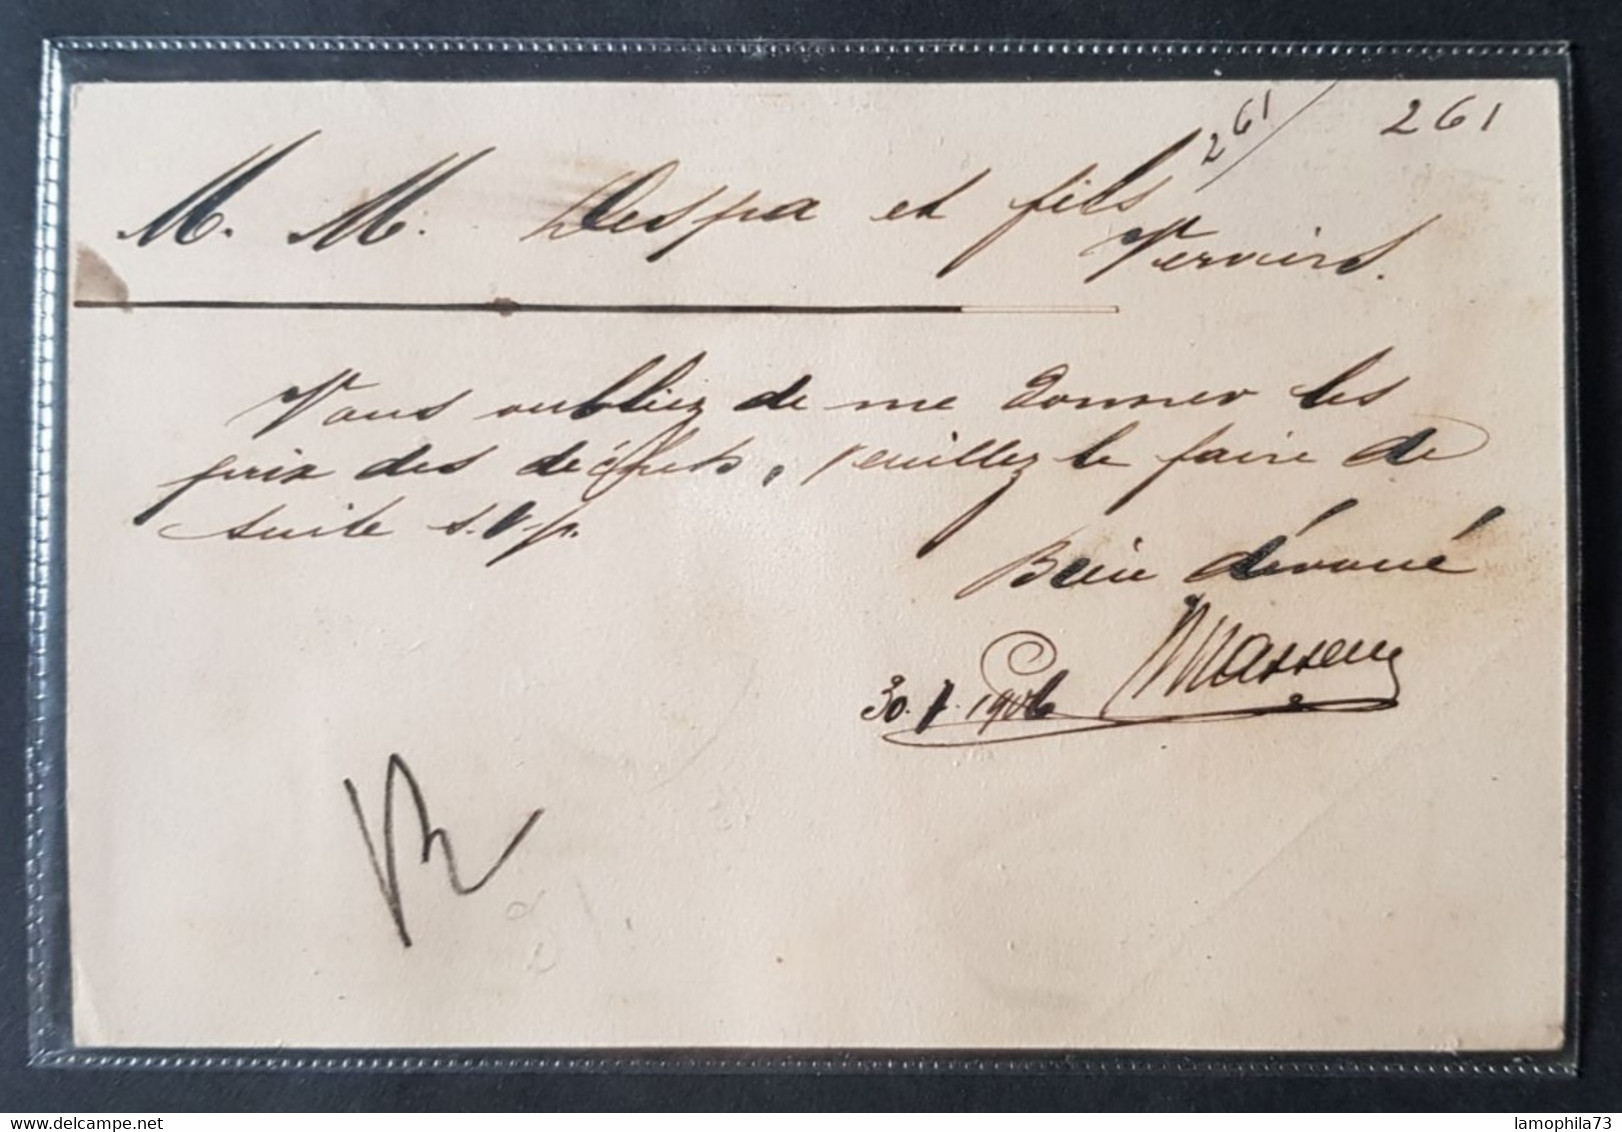 261
261
M. M. Despa et fils
Verviers.
Vous oubliez de me donner les
prix des déchets, veuillez le faire de
suite s.v.p.
Bien dévoué
30.1.1906
lamophila73